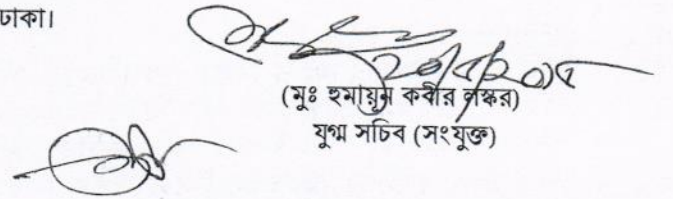 ঢাকা।
(মুঃ হুমায়ূন কবীর লস্কর)
যুগ্ম সচিব (সংযুক্ত)